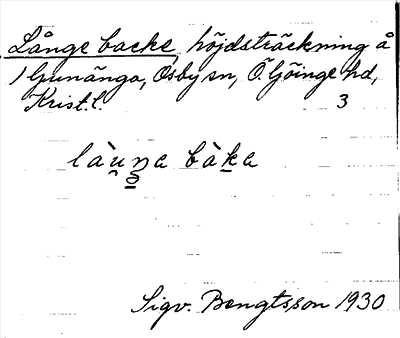 Långe backe, höjdsträckning å
1 Gunänga, Osby sn, Ö. Göinge hd,
Krist. l. 3
làu̯ŋa bàka
Sigv. Bengtsson 1930